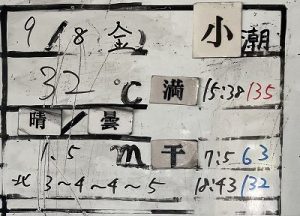 9/8 金 小潮
32 ℃ 満 15:38 135
晴/曇
1.5 m 干 7:5 63
北 3~4~4~5 18:43 132